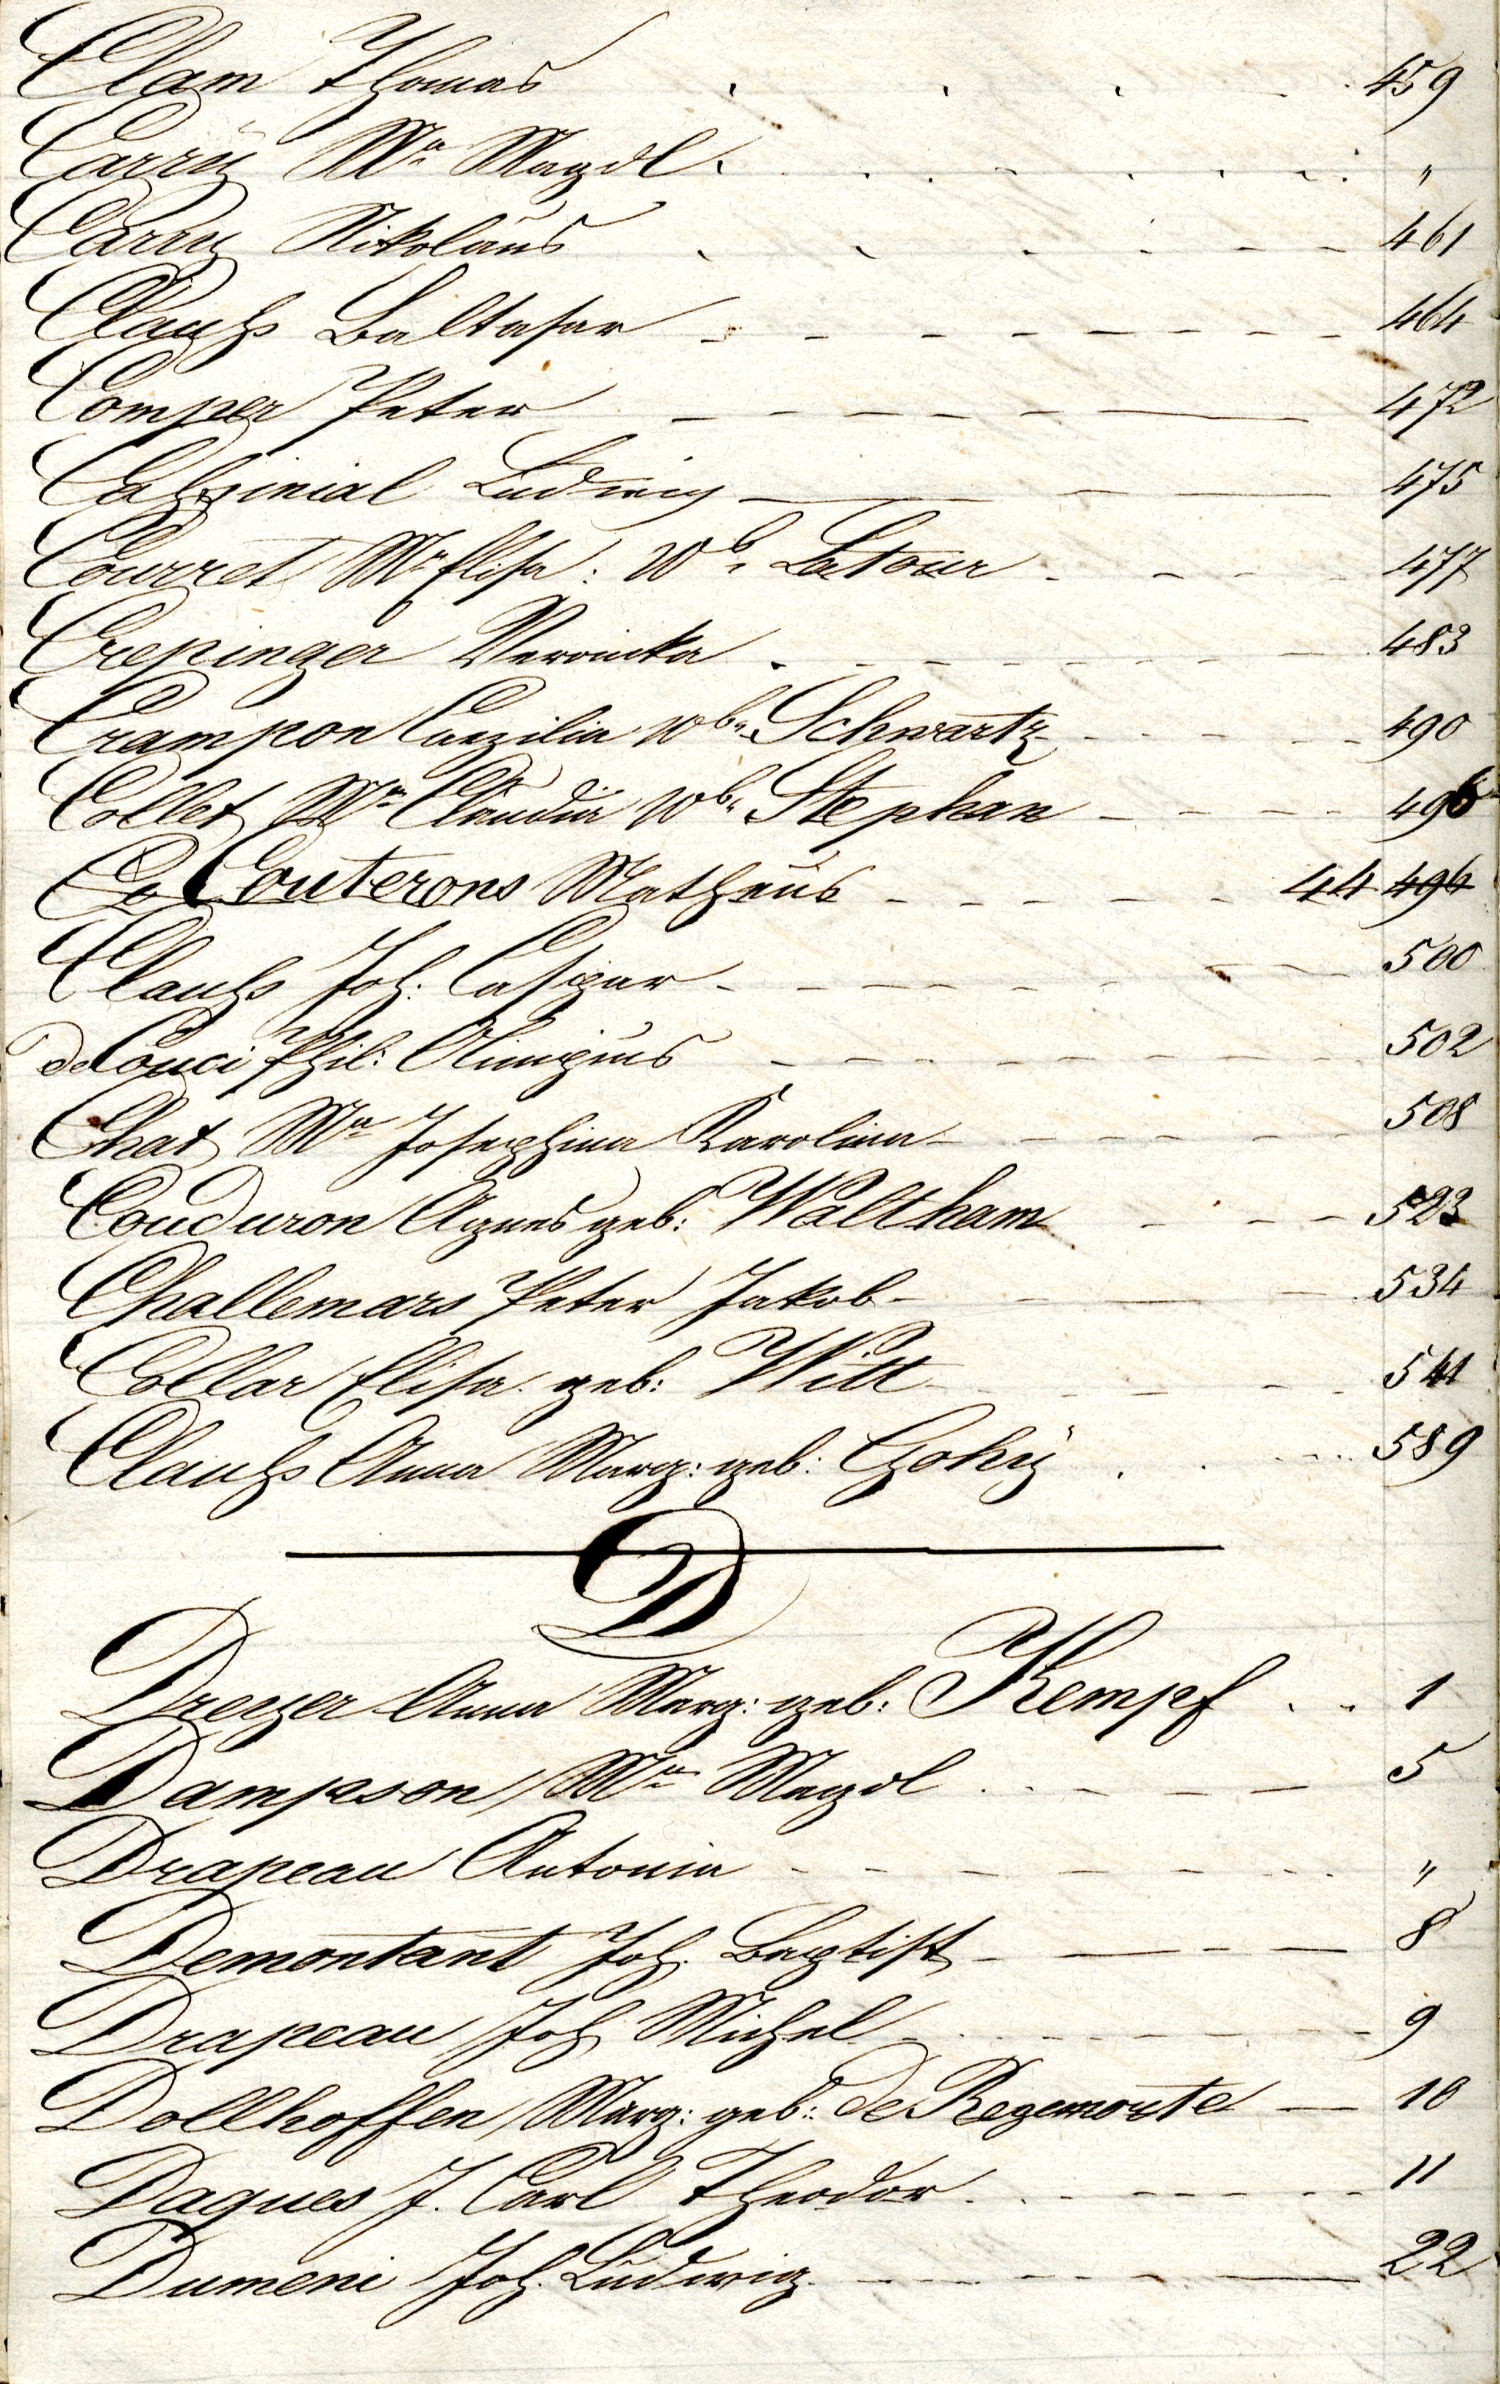 Clam Thomas 459
Carry Mª Magdl. "
Carry Nikolaus 461
Clauß Baltasar 464
Comper Peter 472
Ludwig 475
Courret Mª Elisa: Wb. Letour 477
Crepinger Veronika 483
Crampon Caezilia Wb. Schwartz 490
Collet Mª Claudia Wb. Stephan 496
Couterons Matheus 44 496
Clauß Joh: Caspar 500
de Couci Phil: Olimpius 502
Chat Mª Josephina Karolina 508
Couduron Agnes geb: Waltham 523
Challemars Peter Jakob 534
Collar Elisa geb: Witt 541
Clauß Anna Marg: geb: 589
D
Dreyer Anna Marg: geb: Kempf 1
Dampson Mª Magdl 5
Drapeau Antonia "
Demontant Joh. Baptist 8
Drapeau Joh Michel 9
Dollhoffen Marg: geb: de Regemorte 10
Daques J. Carl Theodor 11
Dumeni Joh. Ludwig 22